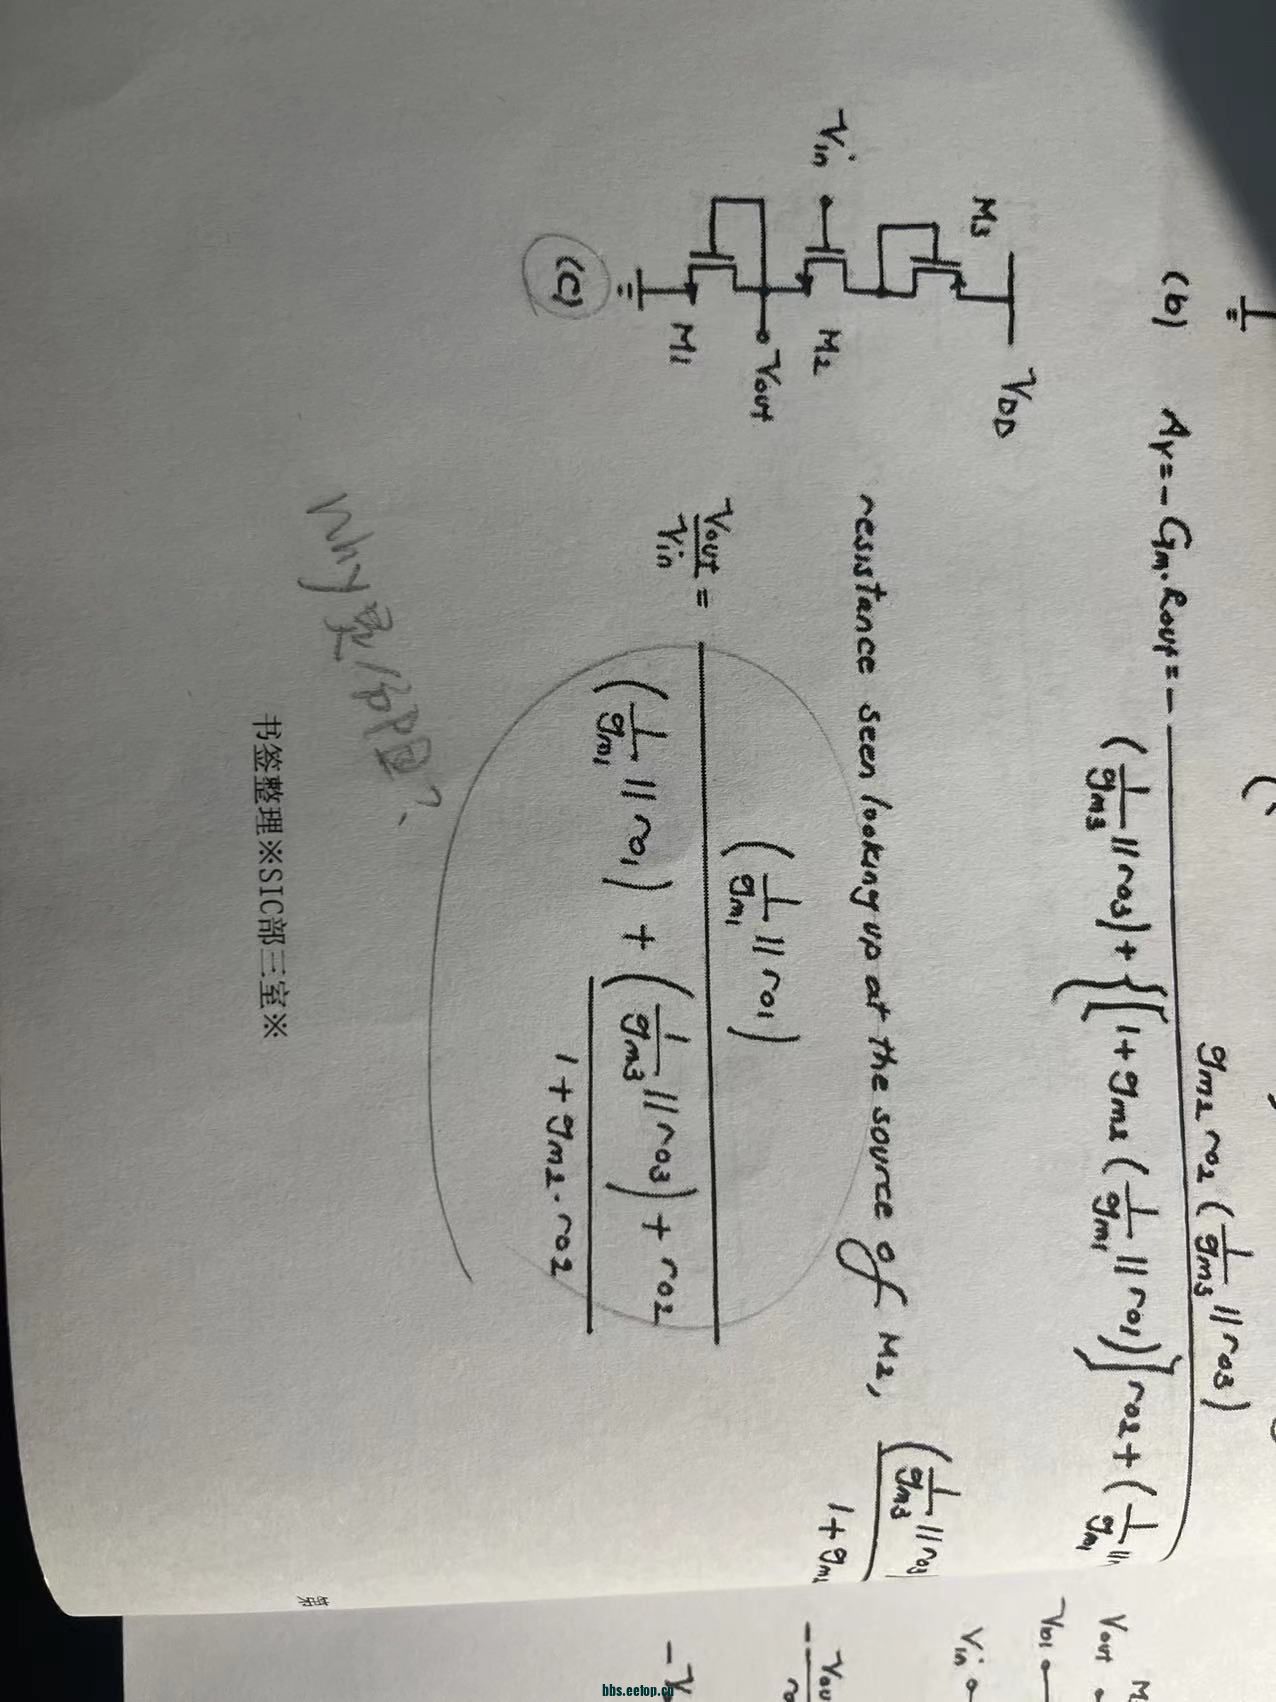 (b) Av = - Gm.Rout = - gm2 ro2 (1/gm3 || ro3) / (1/gm3 || ro3) + {[1 + gm2 (1/gm1 || ro1)] ro2 + (1/gm1 ||
VDD
M3
Vin
M2
Vout
M1
(C)
resistance seen looking up at the source of M2, (1/gm3 || ro3) / 1 + gm2
Vout/Vin = (1/gm1 || ro1) / (1/gm1 || ro1) + (1/gm3 || ro3) + ro2 / 1 + gm2 . ro2
Why是分压?
书签整理※SIC部三室※
第
M
Vout
Vb1
Vin
Vou
ro
bbs.eetop.cn